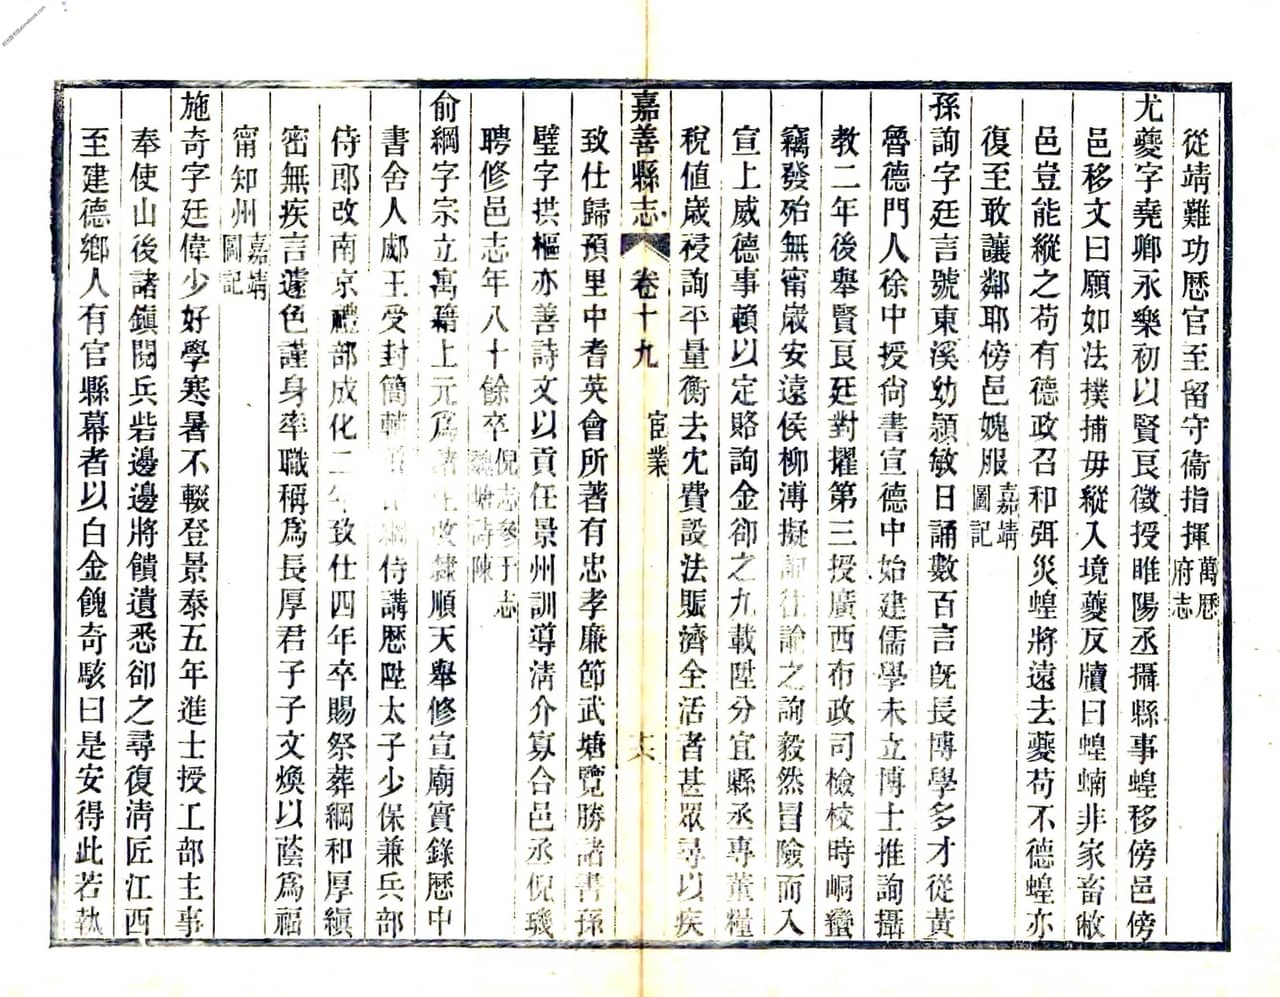 從靖難功歷官至留守衞指揮萬歷府志
尤夔字堯卿永樂初以賢良徵授睢陽丞攝縣事蝗移傍邑傍
邑移文曰願如法撲捕毋縱入境夔反牘曰蝗蝻非家畜敝
邑豈能縱之苟有德政召和弭災蝗將遠去夔苟不德蝗亦
復至敢讓鄰耶傍邑媿服嘉靖圖記
孫詢字廷言號東溪幼穎敏日誦數百言旣長博學多才從黃
魯德門人徐中授尙書宣德中始建儒學未立博士推詢攝
教二年後舉賢良廷對擢第三授廣西布政司檢校時峒蠻
竊發殆無甯歲安遠侯柳溥擬詢往諭之詢毅然冒險而入
宣上威德事賴以定賂詢金卻之九載陞分宜縣丞專董糧
稅值歲祲詢平量衡去宂費設法賑濟全活者甚眾尋以疾
嘉善縣志 卷十九 宦業 十六
致仕歸預里中耆英會所著有忠孝廉節武塘覽勝諸書孫
璧字拱樞亦善詩文以貢任景州訓導淸介寡合邑丞倪璣
聘修邑志年八十餘卒倪志參于志魏塘詩陳
俞綱字宗立寓籍上元爲諸生改隸順天舉修宣廟實錄歷中
書舍人郕王受封簡輔綱侍講歷陞太子少保兼兵部
侍郎改南京禮部成化二年致仕四年卒賜祭葬綱和厚縝
密無疾言遽色謹身率職稱爲長厚君子子文煥以蔭爲福
甯知州嘉靖圖記
施奇字廷偉少好學寒暑不輟登景泰五年進士授工部主事
奉使山後諸鎭閱兵砦邊邊將饋遺悉卻之尋復淸匠江西
至建德鄉人有官縣幕者以白金餽奇駭曰是安得此若執